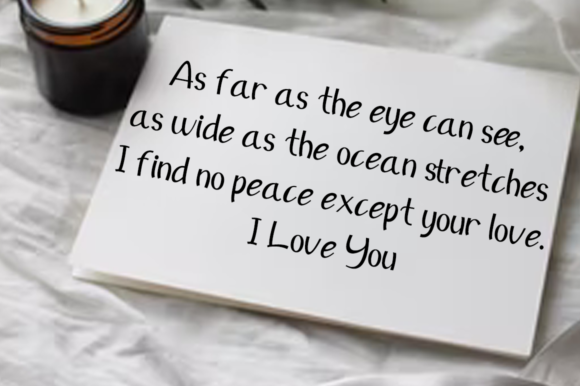 As far as the eye can see,
as wide as the ocean stretches
I find no peace except your love.
I Love You